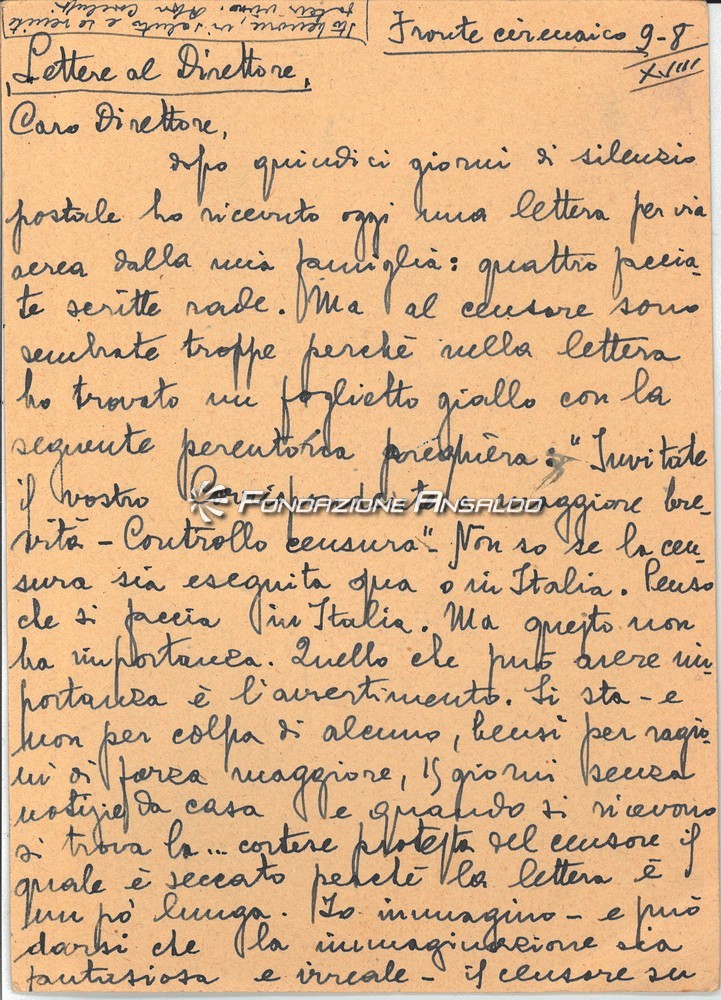 Sto benone, vi saluto e se venite
Fronte cirenaico 9-8
XVIII
Lettere al Direttore,
Caro Direttore,
dopo quindici giorni di silenzio
postale ho ricevuto oggi una lettera per via
aerea dalla mia famiglia: quattro faccia-
te scritte rade. Ma al censore sono
sembrate troppe perchè nella lettera
ho trovato un foglietto giallo con la
seguente perentoria preghiera: "Invitate
il vostro Corrispondente a maggiore bre-
vità - Controllo censura". Non so se la cen-
sura sia eseguita qua o in Italia. Penso
che si faccia in Italia. Ma questo non
ha importanza. Quello che può avere im-
portanza è l'avvertimento. Si sta - e
non per colpa di alcuno, bensì per ragio-
ni di forza maggiore, 15 giorni senza
notizie da casa e quando si ricevono
si trova la... cortese protesta del censore il
quale è seccato perchè la lettera è
un pò lunga. Io immagino - e può
darsi che la immaginazione sia
fantasiosa e irreale - il censore su
FONDAZIONE ANSALDO